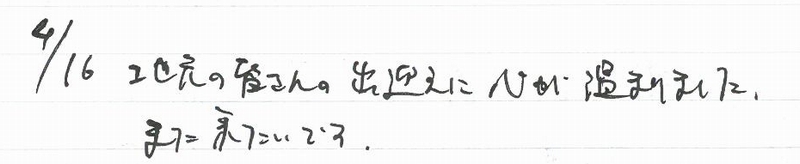 4/16 地元の皆さんの出迎えに心が温まりました。
また来たいです。